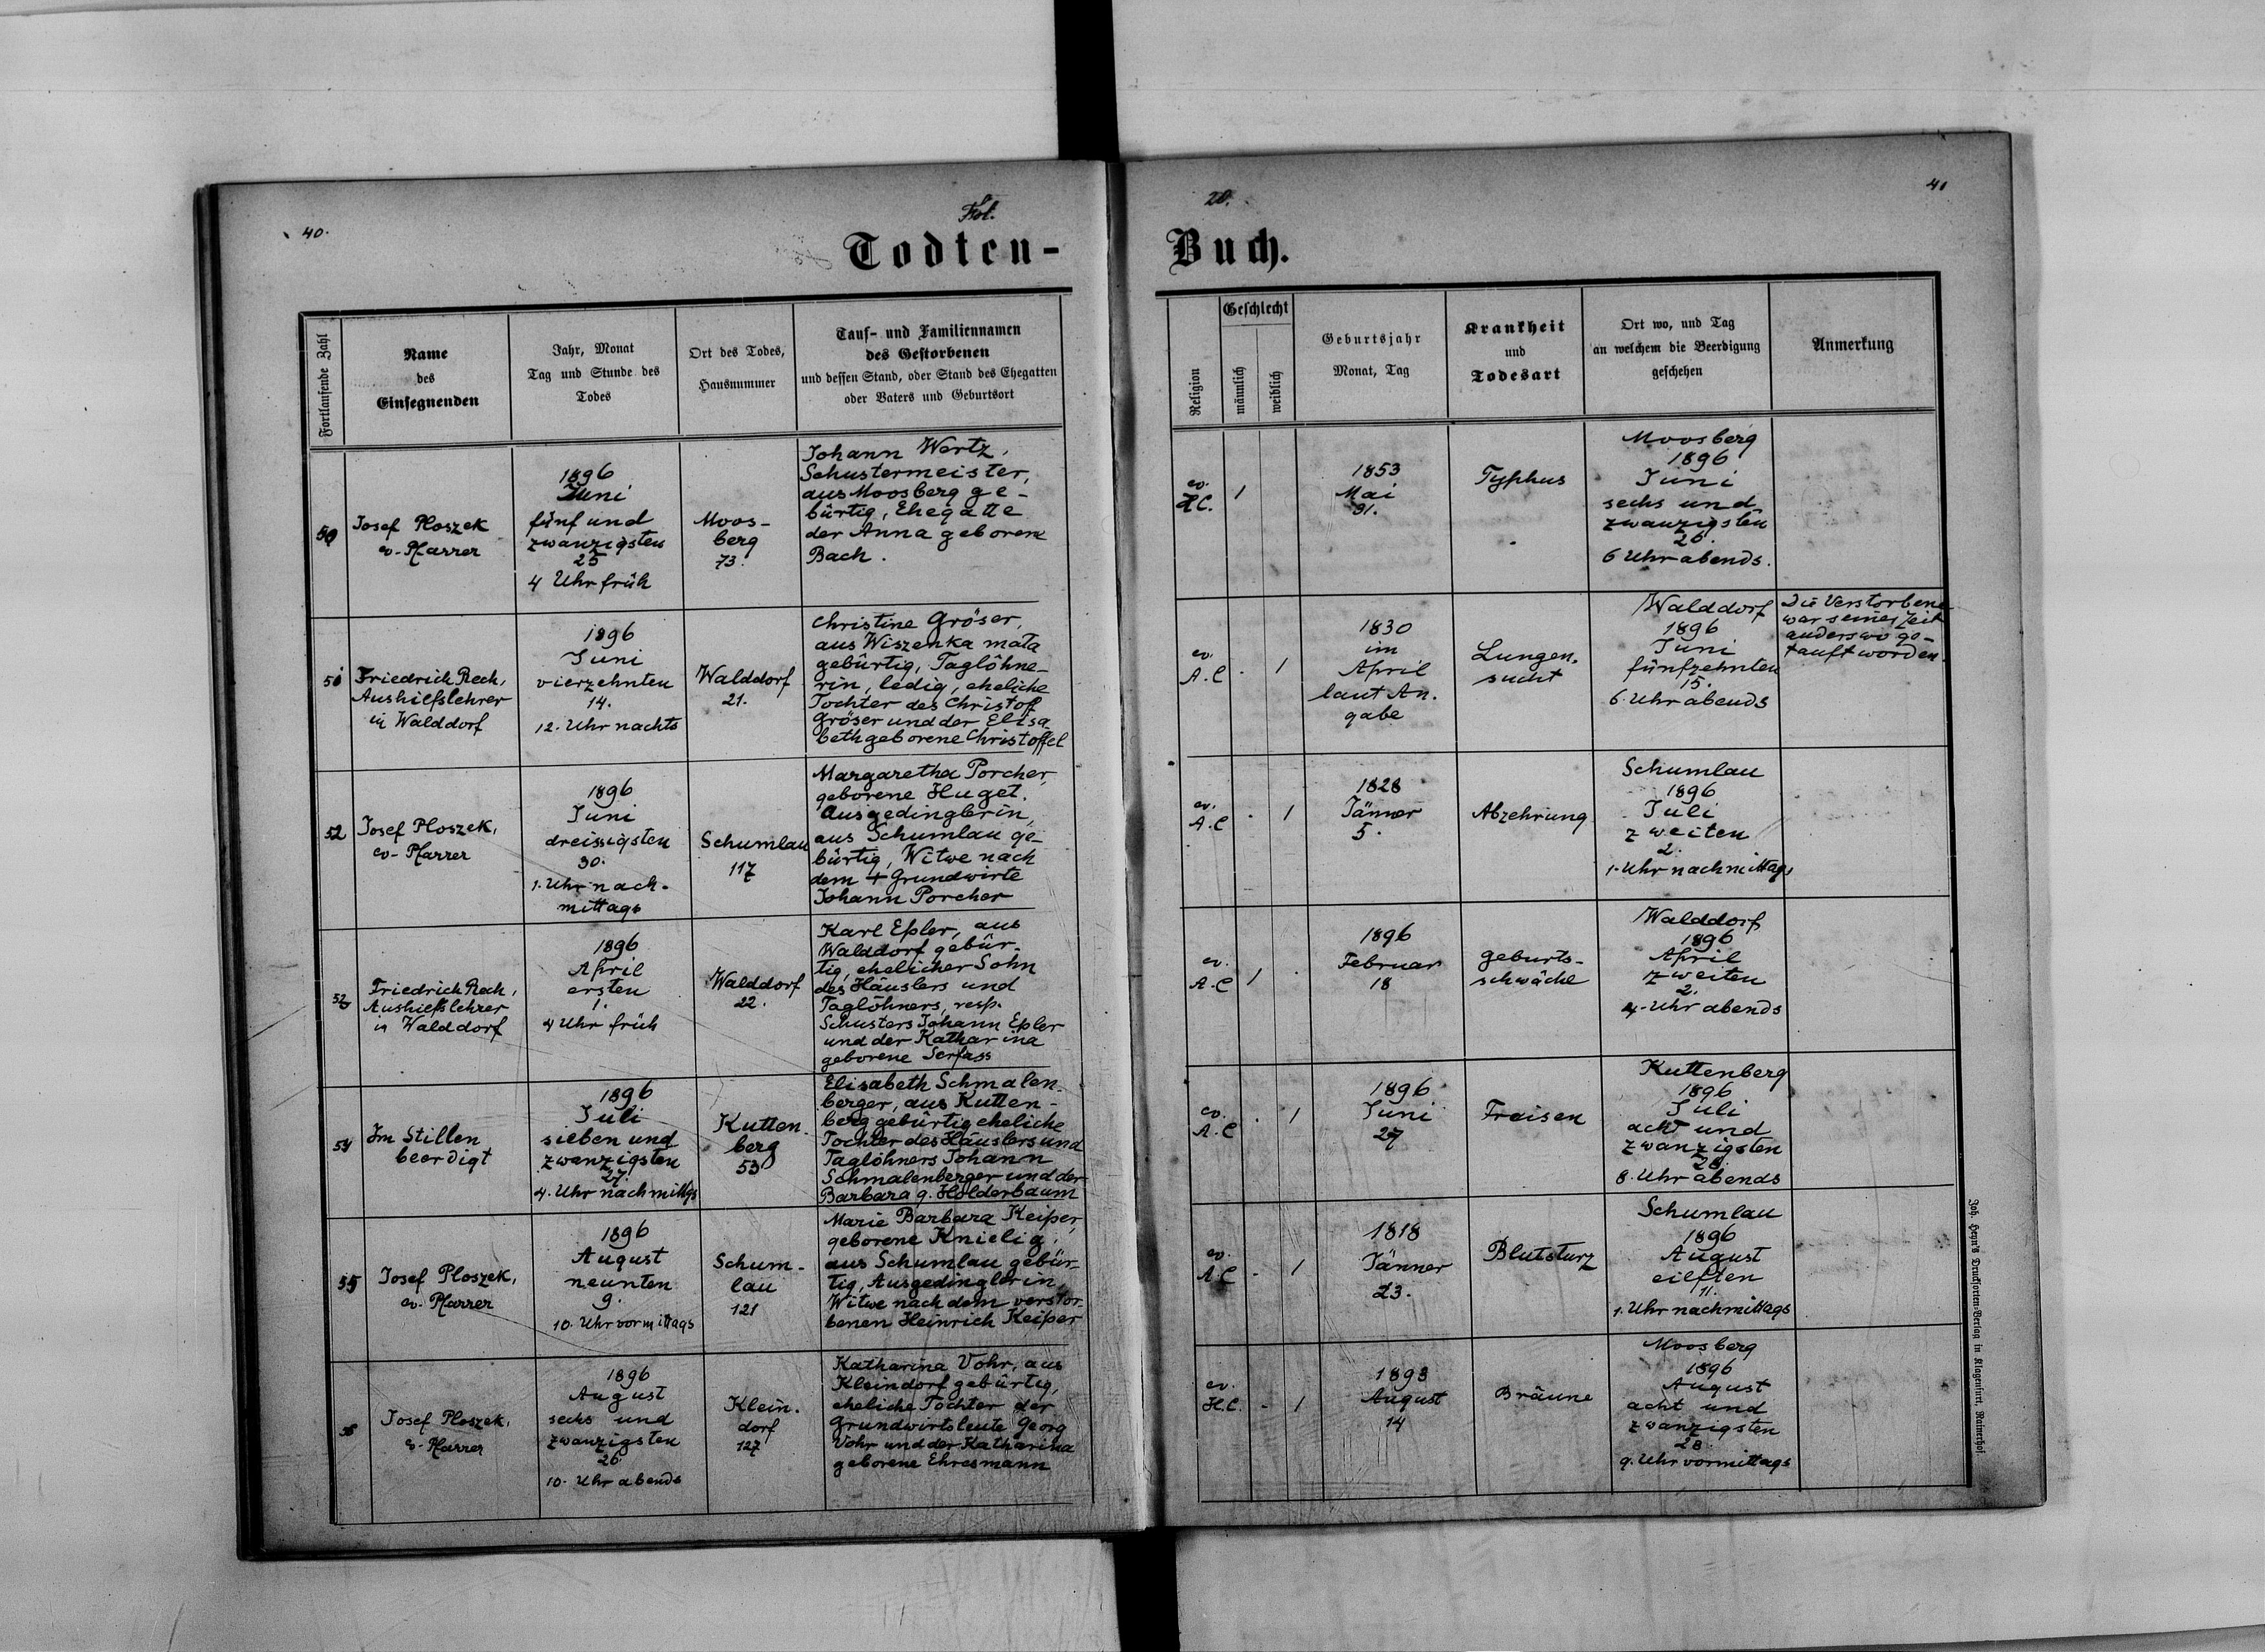 40.
Fol.
20.
41
Todten-
Buch.
Fortlaufende Zahl
Name
des
Einsegnenden
Jahr, Monat
Tag und Stunde des
Todes
Ort des Todes,
Hausnummer
Tauf- und Familiennamen
des Gestorbenen
und dessen Stand, oder Stand des Ehegatten
oder Vaters und Geburtsort
Religion
Geschlecht
männlich
weiblich
Geburtsjahr
Monat, Tag
Krankheit
und
Todesart
Ort wo, und Tag
an welchem die Beerdigung
geschehen
Anmerkung
50
Josef Ploszek
ev. Pfarrer
1896
Juni
fünf und
zwanzigsten
25
4 Uhr früh
Moos-
berg
73.
Johann Wertz,
Schustermeister,
aus Moosberg ge-
bürtig, Ehegatte
der Anna geborene
Bach.
ev.
H.C.
1
1853
Mai
31.
Typhus
Moosberg
1896
Juni
sechs und
zwanzigsten
26.
6 Uhr abends.
51
Friedrich Rech,
Aushilfslehrer
in Walddorf
1896
Juni
vierzehnten
14.
12. Uhr nachts
Walddorf
21.
Christine Gröser,
aus Wiszenka mała
gebürtig, Taglöhne-
rin, ledig, eheliche
Tochter des Christoff
Gröser und der Elisa
beth geborene Christoffel
ev.
A.C
. 1
1830
im
April
laut An-
gabe
Lungen-
sucht
Walddorf
1896
Juni
fünfzehnten
15.
6. Uhr abends
Die Verstorbene
war seiner Zeit
anderswo ge-
tauft worden.
52
Josef Ploszek,
ev. Pfarrer
1896
Juni
dreissigsten
30.
1. Uhr nach-
mittags
Schumlau
117
Margaretha Porcher,
geborene Huget.
Ausgedinglerin,
aus Schumlau ge-
bürtig, Witwe nach
dem + Grundwirte
Johann Porcher
ev.
A.C
. 1
1828
Jänner
5.
Abzehrung
Schumlau
1896
Juli
zweiten
2.
1. Uhr nachmittags
53
Friedrich Rech,
Aushilfslehrer
in Walddorf
1896
April
ersten
1.
4 Uhr früh
Walddorf
22.
Karl Epler, aus
Walddorf gebür-
tig, ehelicher Sohn
des Häuslers und
Taglöhners, resp.
Schusters Johann Epler
und der Katharina
geborene Serfass
ev.
A.C
1 .
1896
Februar
18
geburts-
schwäche
Walddorf
1896
April
zweiten
2.
4. Uhr abends
54
Im Stillen
beerdigt
1896
Juli
sieben und
zwanzigsten
27.
4. Uhr nachmittgs
Kutten-
berg
53
Elisabeth Schmalen-
berger, aus Kutten-
berg gebürtig eheliche
Tochter des Häuslers und
Taglöhners Johann
Schmalenberger und der
Barbara g. Holderbaum
ev.
A.C
. 1
1896
Juni
27
Fraisen
Kuttenberg
1896
Juli
acht und
zwanzigsten
28.
8. Uhr abends
55
Josef Ploszek,
ev. Pfarrer
1896
August
neunten
9.
10. Uhr vormittags
Schum-
lau
121
Marie Barbara Keiper,
geborene Knielig,
aus Schumlau gebür-
tig, Ausgedinglerin,
Witwe nach dem verstor-
benen Heinrich Keiper
ev.
A.C
- 1
1818
Jänner
23.
Blutsturz
Schumlau
1896
August
eilften
11.
1. Uhr nachmittags
56
Josef Ploszek,
ev. Pfarrer
1896
August
sechs und
zwanzigsten
26.
10. Uhr abends
Klein-
dorf
127
Katharina Vohr, aus
Kleindorf gebürtig,
eheliche Tochter der
Grundwirtsleute Georg
Vohr und der Katharina
geborene Ehresmann
ev.
H.C.
- 1
1893
August
14
Bräune
Moosberg
1896
August
acht und
zwanzigsten
28.
9. Uhr vormittags
Joh. Heyn's Drucksorten-Verlag in Klagenfurt, Rainerhof.